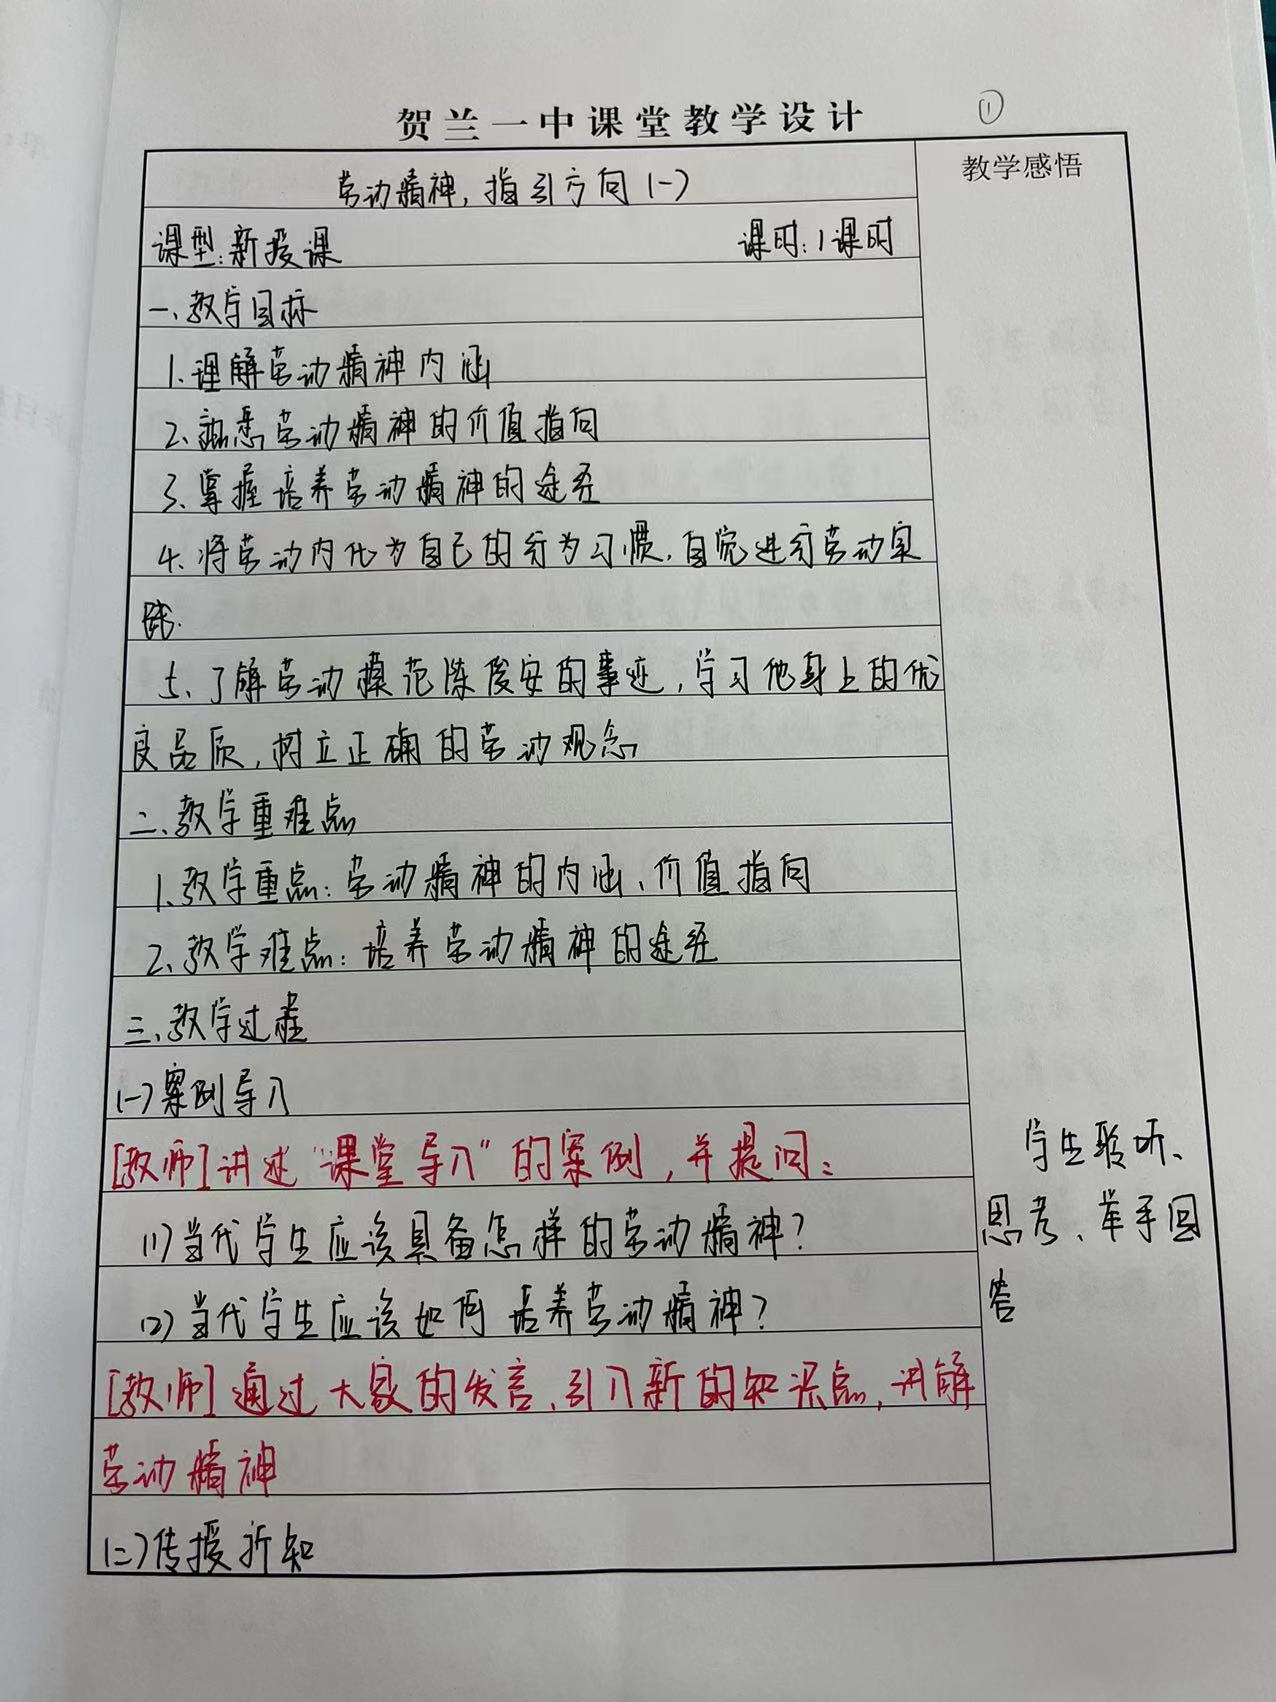 贺兰一中课堂教学设计
①
教学感悟
劳动精神,指引方向(一)
课型:新授课 课时:1课时
一、教学目标
1.理解劳动精神内涵
2.熟悉劳动精神的价值指向
3.掌握培养劳动精神的途径
4.将劳动内化为自己的行为习惯,自觉进行劳动实
践.
5.了解劳动模范陈俊安的事迹,学习他身上的优
良品质,树立正确的劳动观念
二、教学重难点
1.教学重点:劳动精神的内涵、价值指向
2.教学难点:培养劳动精神的途径
三、教学过程
(一)案例导入
[教师]讲述“课堂导入”的案例,并提问:
(1)当代学生应该具备怎样的劳动精神?
(2)当代学生应该如何培养劳动精神?
[教师]通过大家的发言,引入新的知识点,讲解
劳动精神
(二)传授新知
学生聆听、
思考、举手回
答